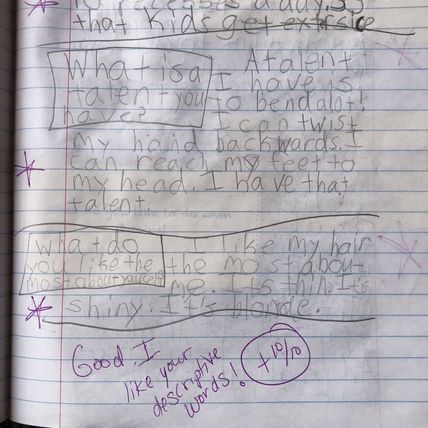 10 recesses a day. So
that kids get extersice
What is a
talent you
have?
A talent
I have is
to bend alot!
I can twist
my hand backwards. I
can reach my feet to
my head. I have that
talent.
what do
you like the
most about yourself?
I like my hair
the most about
me. Its thin. Its
shiny. It's blonde.
Good. I
like your
descriptive
words!
+10/10